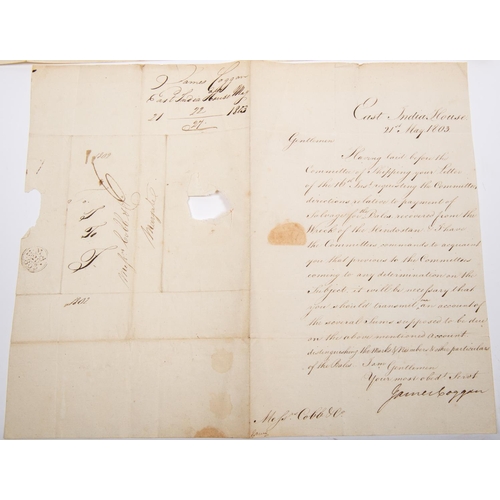 James Coggan
East India House May
21 1803
22
27
Messrs Cobb & Co
Margate
East India House
21st May 1803
Gentlemen
Having laid before the
Committee of Shipping your Letter
of the Inst. requesting the Committees
directions relative to payment of
Salvage for the Bales recovered from the
Wreck of the Hindostan I have
the Committees commands to acquaint
you that previous to the Committees
coming to any determination on the
Subject it will be necessary that
you should transmit an account of
the several Sums supposed to be due
on the above mentioned account
distinguishing the Marks & Numbers & other particulars
of the Bales I am
Gentlemen
Your most obedt. Servt
James Coggan
Messrs. Cobb & Co.